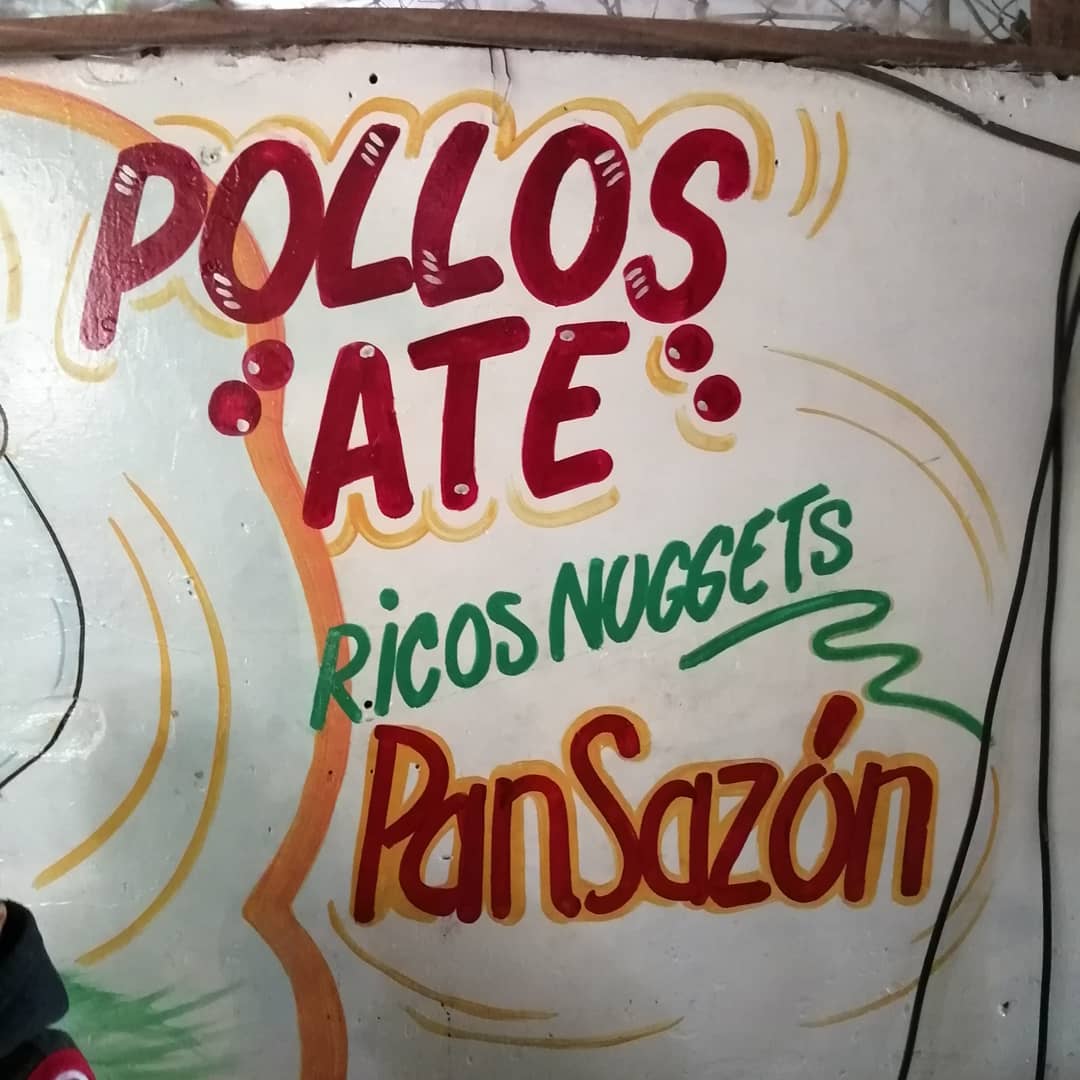 POLLOS
ATE
RICOS NUGGETS
PanSazón